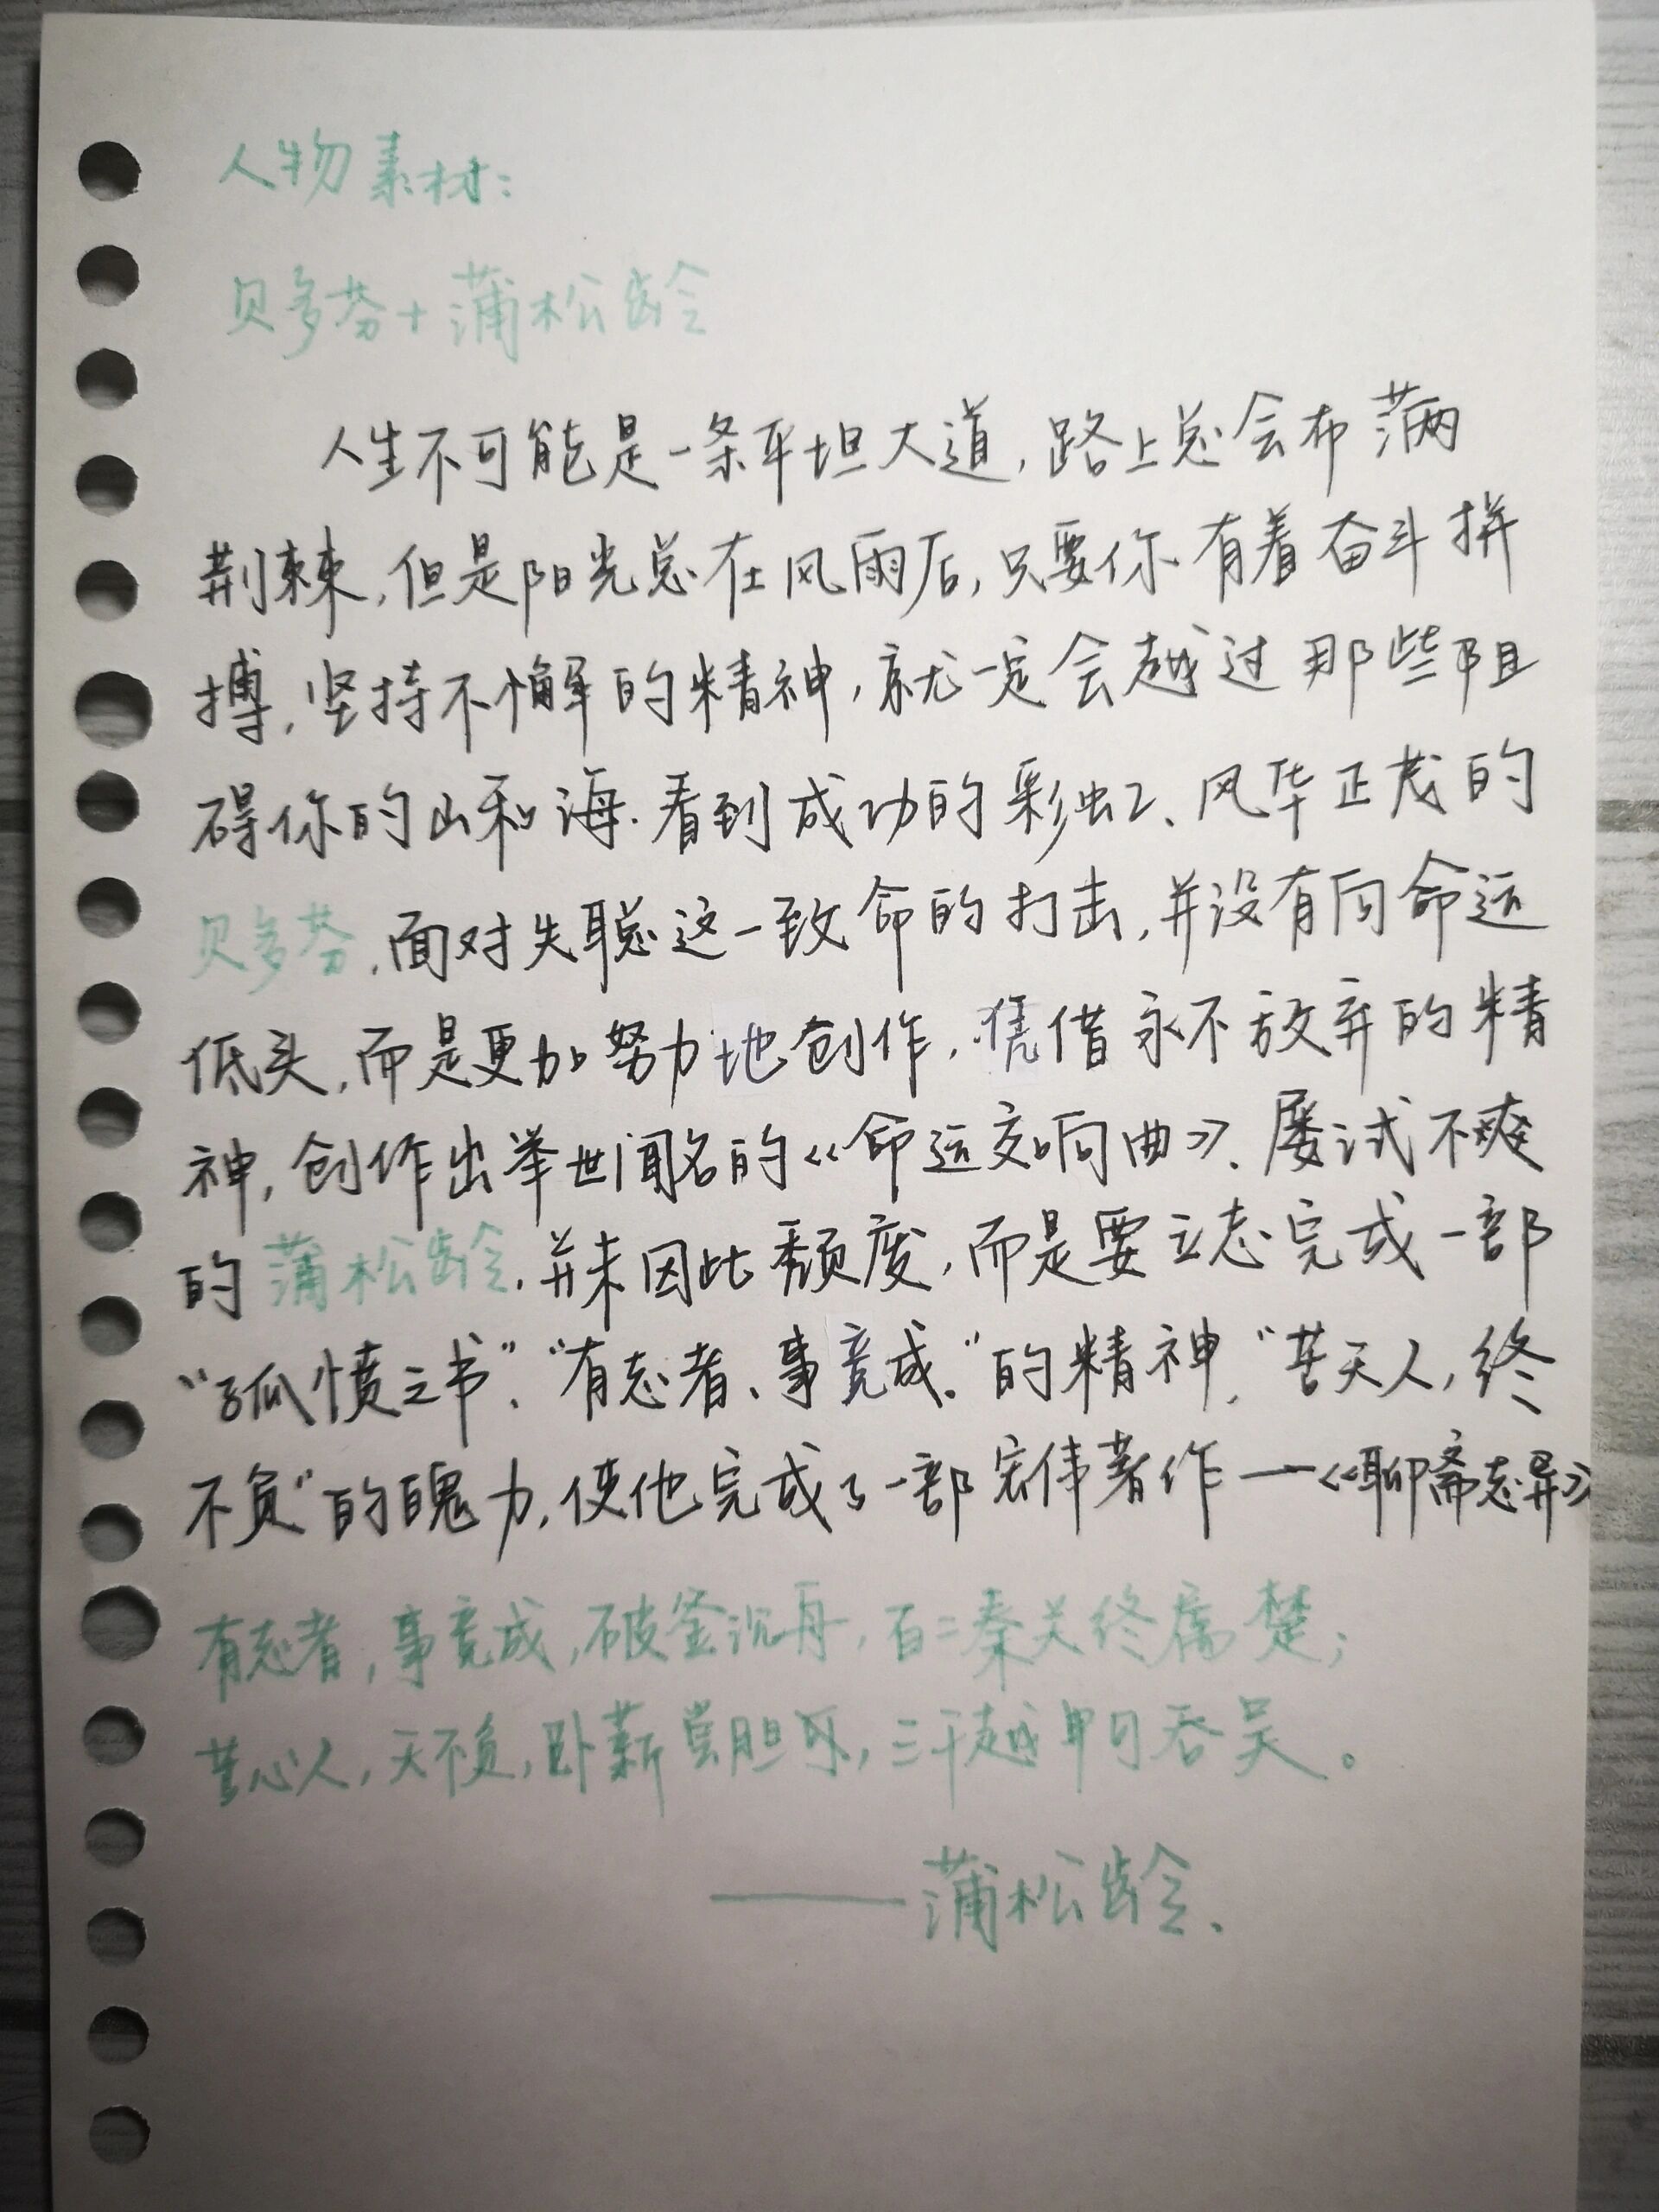 人物素材：
贝多芬+蒲松龄
人生不可能是一条平坦大道，路上总会布满
荆棘，但是阳光总在风雨后，只要你有着奋斗拼
搏，坚持不懈的精神，就一定会越过那些阻
碍你的山和海.看到成功的彩虹、风华正茂的
贝多芬，面对失聪这一致命的打击，并没有向命运
低头，而是更加努力地创作，凭借永不放弃的精
神，创作出举世闻名的《命运交响曲》、屡试不爽
的蒲松龄，并未因此颓废，而是要立志完成一部
“孤愤之书”、“有志者、事竟成.”的精神，“苦天人，终
不负”的魄力，使他完成了一部宏伟著作—《聊斋志异》
有志者，事竟成，破釜沉舟，百二秦关终属楚；
苦心人，天不负，卧薪尝胆，三千越甲可吞吴。
——蒲松龄、